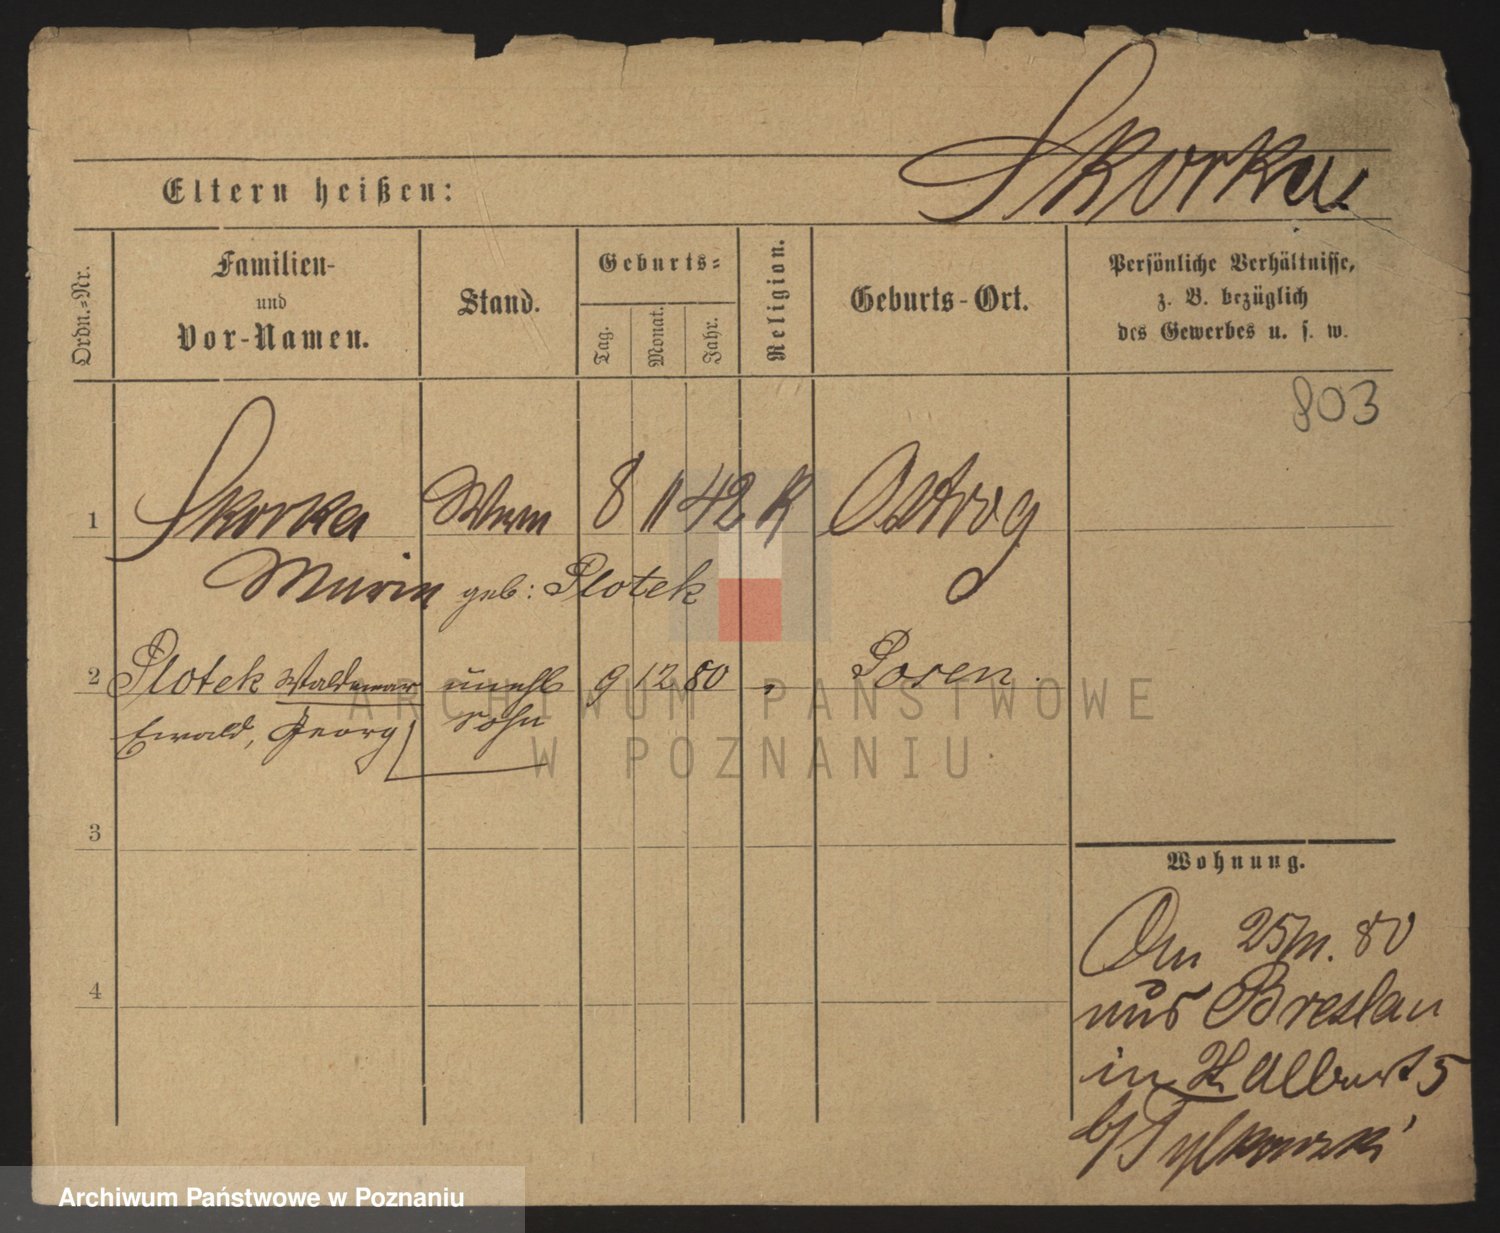 Skorka.
Eltern heißen:
Ordn.-Nr.
Familien-
und
Vor-Namen.
Stand.
Geburts-
Tag.
Monat.
Jahr.
Religion.
Geburts-Ort.
Persönliche Verhältnisse,
z. B. bezüglich
des Gewerbes u. s. w.
803
1 Skorka Wwe 8 11 42 K Ostrog
Maria geb: Plotek
2 Plotek Waldemar unehl 9 12 80 " Posen.
Ewald, Georg Sohn
3
4
Wohnung.
Am 25/11. 80
aus Breslau
in St. Albert 5
b/ Tylkowski
ARCHIWUM PAŃSTWOWE
W POZNANIU
Archiwum Państwowe w Poznaniu